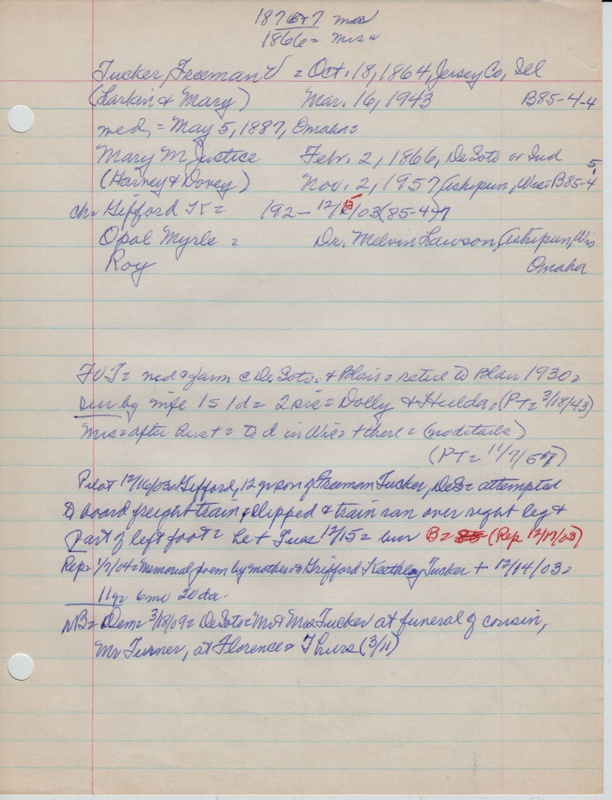 1876 or 7 mar
1866 = mrs =
Tucker, Freeman V = Oct. 18, 1864, Jersey Co, Ill
(Larkin & Mary) Mar. 16, 1943 B85-4-4
med. = May 5, 1887, Omaha =
Mary M Justice Febr. 2, 1866, DeSoto or Ind
(Harvey & Dovey) Nov. 2, 1957, Ashipun, Wis = B85-4
5
ch = Gifford K = 192 - 12/15/03 (85-4-7
Opal Myrle = Dr. Melvin Lawson, Ashipun, Wis
Roy Omaha
FVT = med & farm c DeSoto & Blair = retire to Blair 1930 =
sur by wife 1s 1d = 2 sis = Dolly & Hulda = (PT = 3/18/43)
Mrs = after hus + = to d in Wis = + there = (no details)
(PT = 11/7/57)
Pilot 12/16/03 = Gifford, 12 yr son of Freeman Tucker, DeS = attempted
to board freight train & slipped & train ran over right leg &
part of left foot = he + Tues 12/15 = bur B = 85 = (Rep 12/17/03)
Rep = 1/7/04 = Memorial poem by mother = Gifford Tucker + 12/14/03 =
11 yr 6 mo 20 da.
NB = Dem = 3/18/09 = DeSoto = Mr & Mrs Tucker at funeral of cousin,
Mr Turner, at Florence = Thurs (3/11)